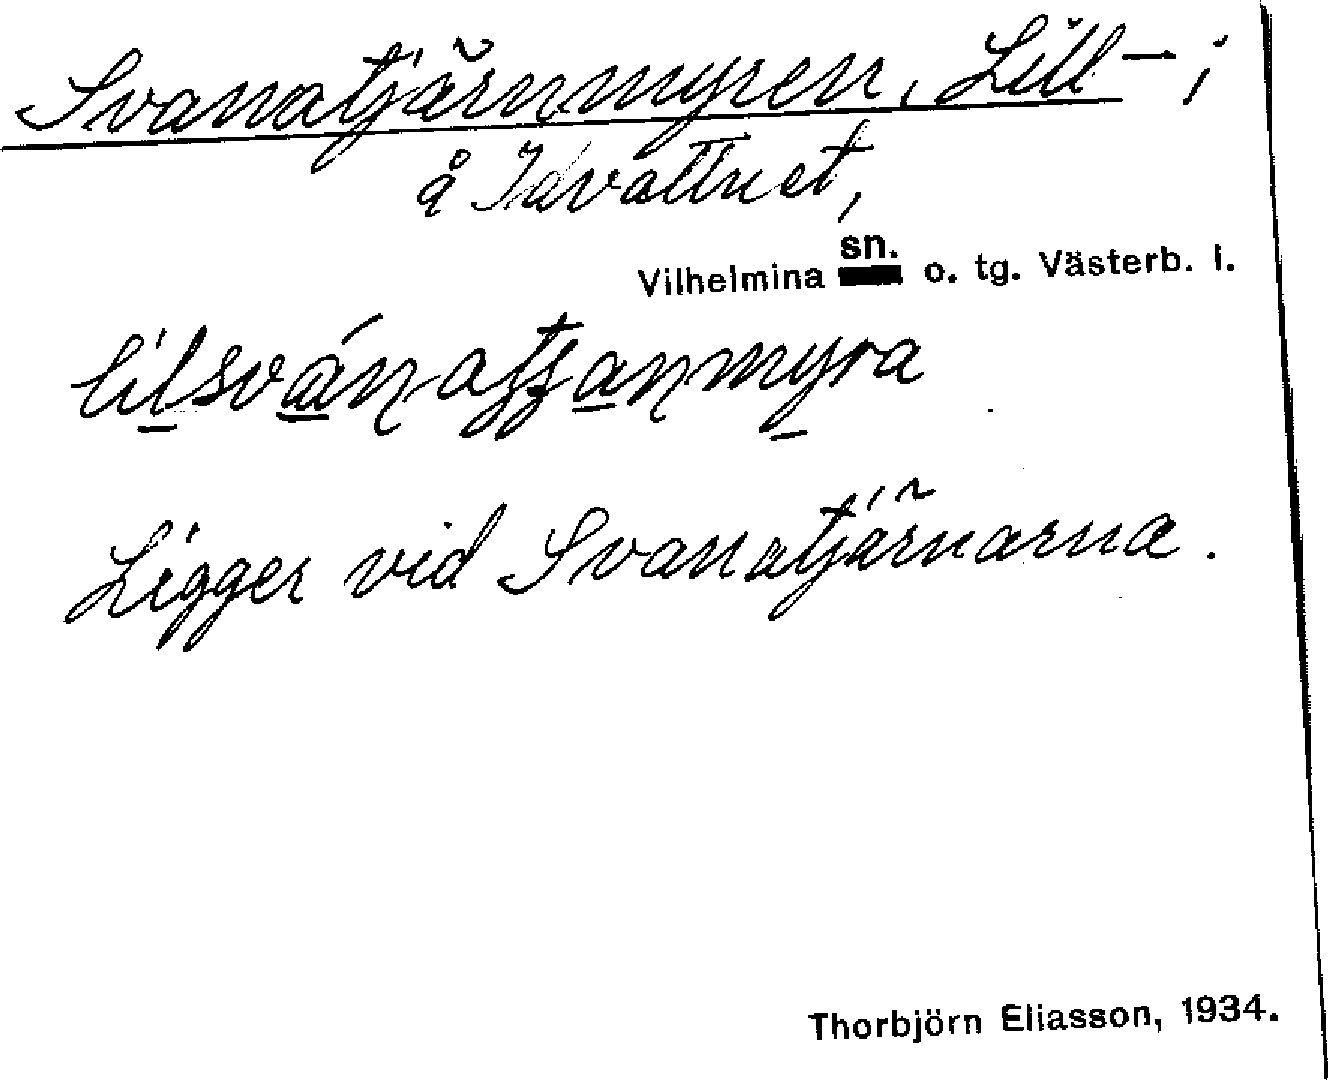 Svanatjärnmyren, Lill- ;
å Idvattnet,
sn.
Vilhelmina o. tg. Västerb. l.
Ligger vid Svanatjärnarna.
Thorbjörn Eliasson, 1934.